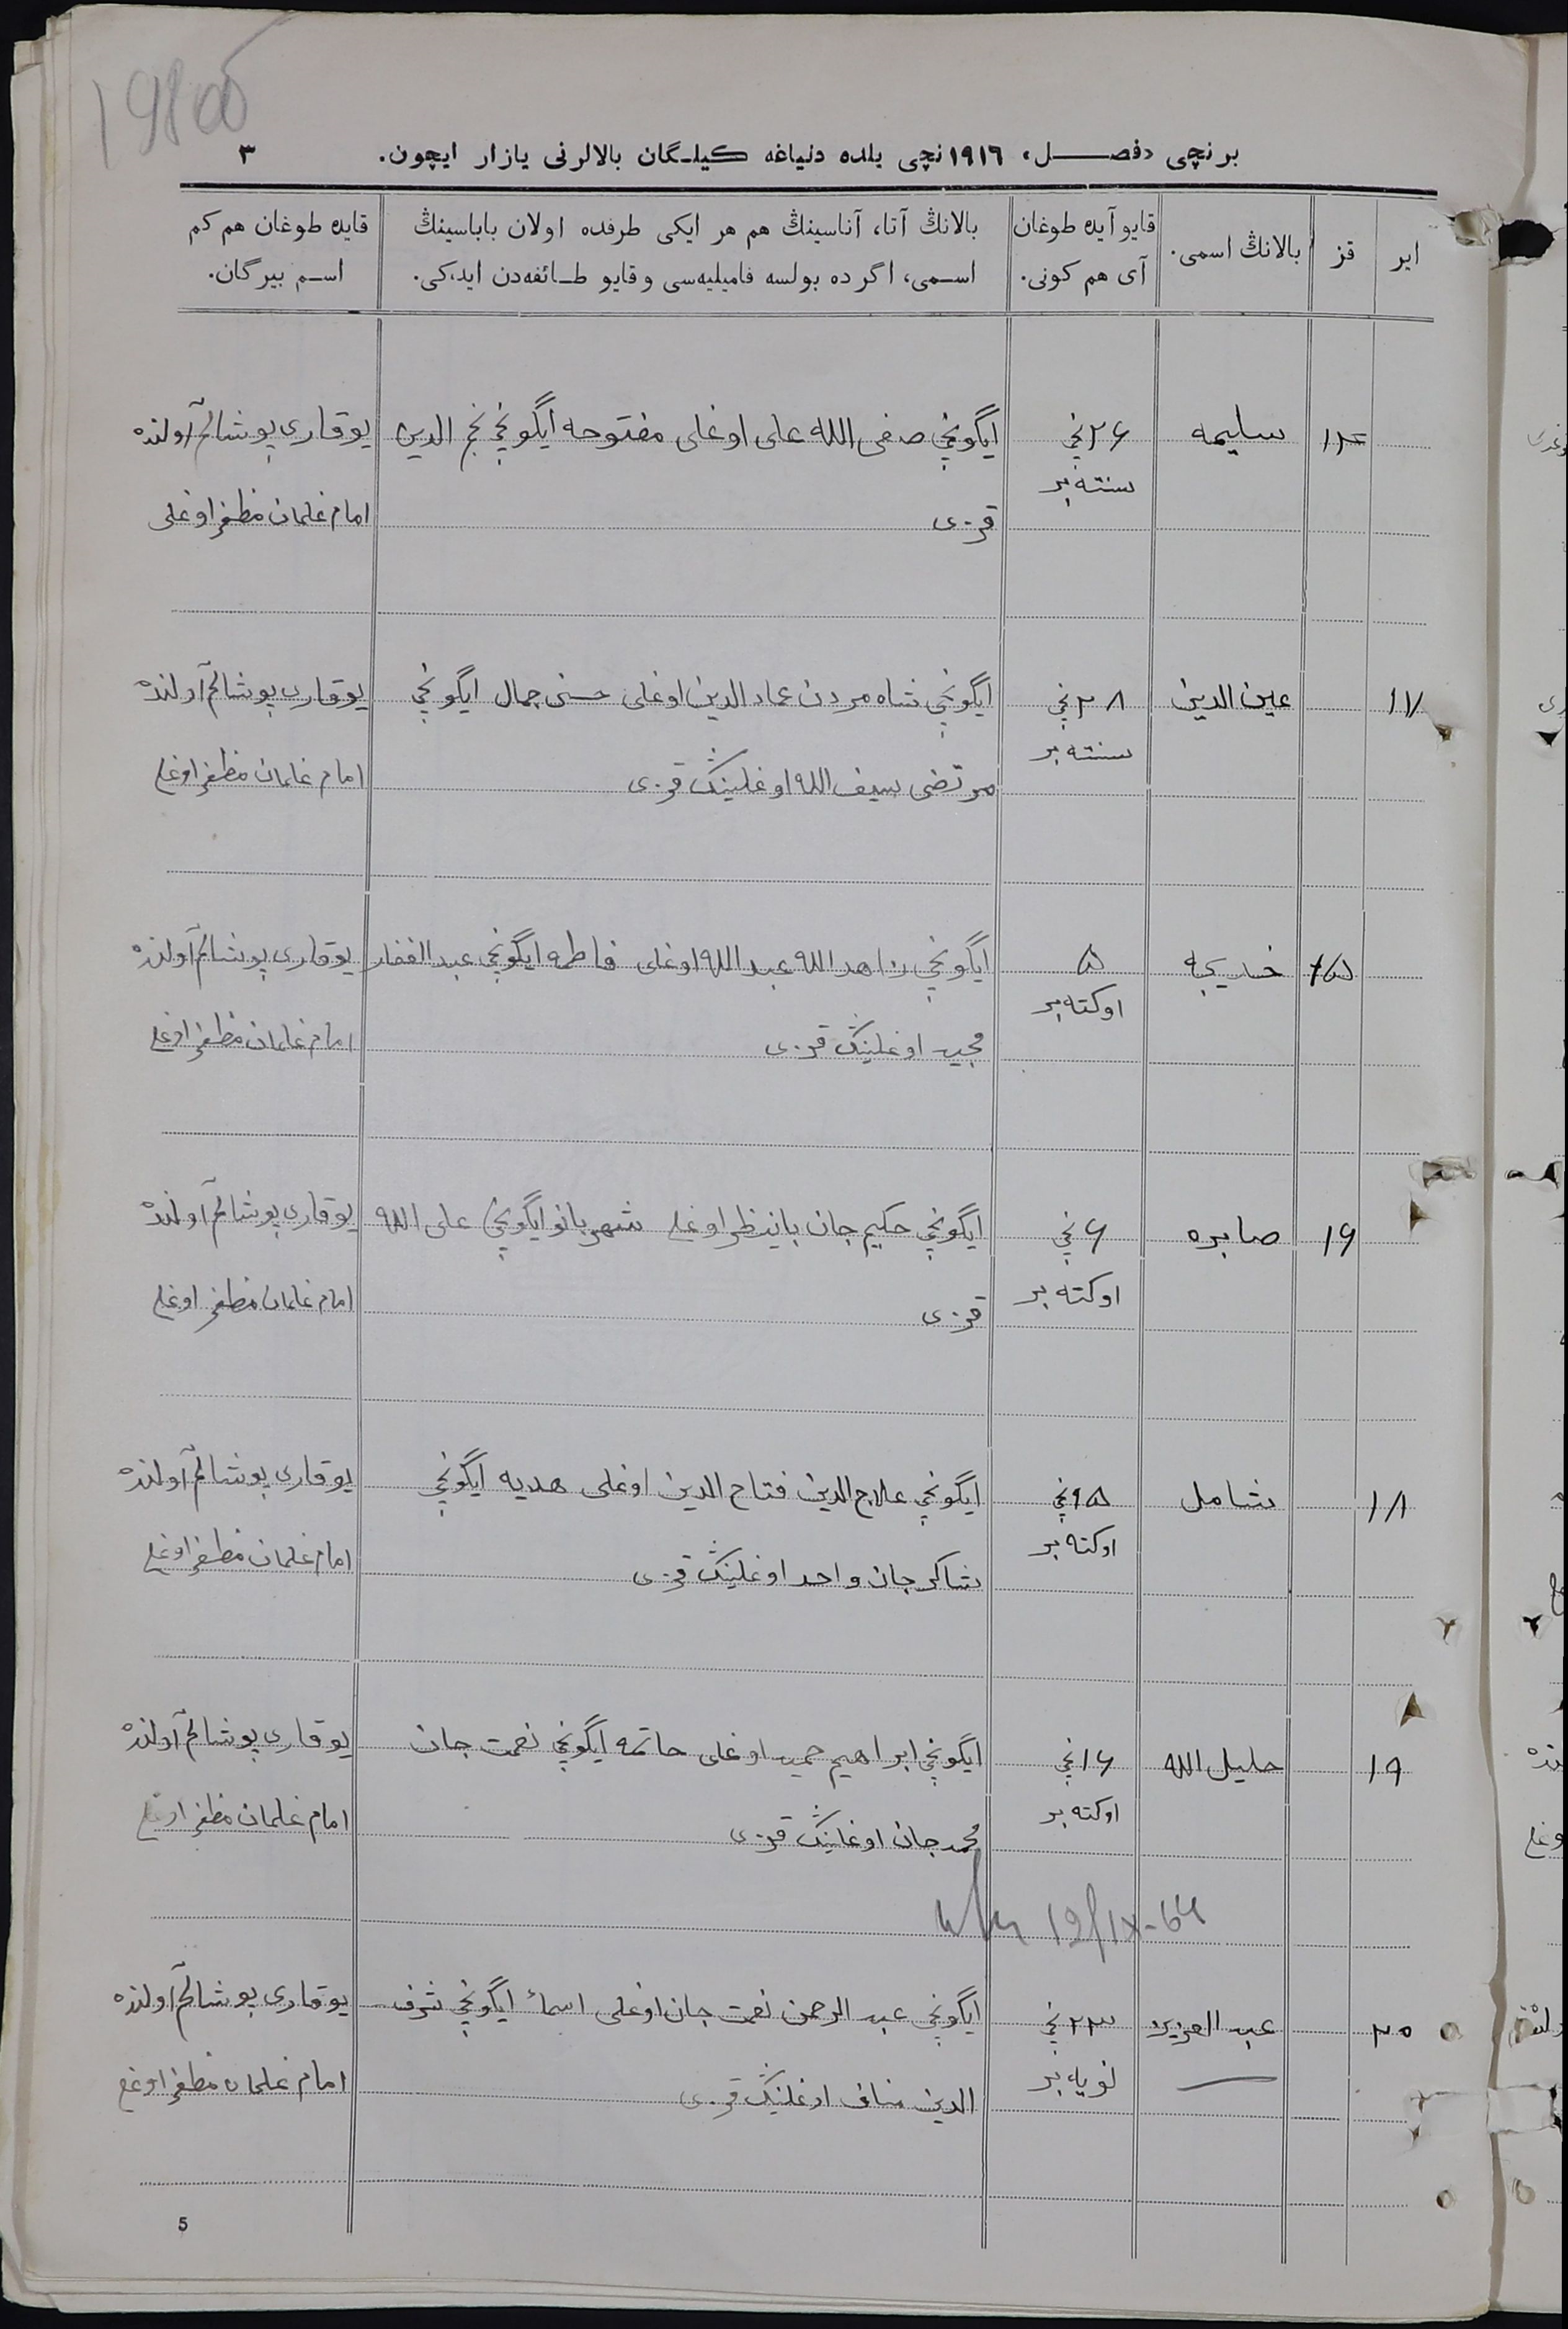 برنچی «فصل» ۱۹۱٦نچی یلده دنیاغه کیلگان بالالرنی یازار ایچون. ۳
ایر
قز
بالانڭ اسمی.
قایو آیده طوغان
آی هم کونی.
بالانڭ آتا، آناسینڭ هم هر ایکی طرفده اولان باباسینڭ
اسمی، اگرده بولسه فامیلیه‌سی و قایو طائفه‌دن ایدکی.
قایده طوغان هم کم
اسم بیرگان.
سلیمه
۲۶نچی
سنته‌بر
ایگونچی صفی الله علی اوغلی مفتوحه ایگونچی نجم الدین
قزی
یوقاری پوشالم آولنده
امام غلمان مظفر اوغلی
۱۷
عین الدین
۲۸نچی
سنته‌بر
ایگونچی شاه مردن عماد الدین اوغلی حسنی جمال ایگونچی
مرتضی سیف الله اوغلینڭ قزی
یوقاری پوشالم آولنده
امام غلمان مظفر اوغلی
۱۵
خدیجه
۵
اوکته‌بر
ایگونچی زاهد الله عبد الله اوغلی فاطمه ایگونچی عبد الغفار
مجید اوغلینڭ قزی
یوقاری پوشالم آولنده
امام غلمان مظفر اوغلی
۱۶
صابره
۶نچی
اوکته‌بر
ایگونچی حکیم جان باینظر اوغلی شهربانو ایگونچی علی الله
قزی
یوقاری پوشالم آولنده
امام غلمان مظفر اوغلی
۱۸
شامل
۱۵نچی
اوکته‌بر
ایگونچی علاج الدین فتاح الدین اوغلی هدیه ایگونچی
شاکر جان واحد اوغلینڭ قزی
یوقاری پوشالم آولنده
امام غلمان مظفر اوغلی
۱۹
خلیل الله
۱۶نچی
اوکته‌بر
ایگونچی ابراهیم حمید اوغلی حاتمه ایگونچی نعمت جان
محمد جان اوغلینڭ قزی
یوقاری پوشالم آولنده
امام غلمان مظفر اوغلی
19/IX-64
۲۰
عبد العزیز
۲۳نچی
نویابر
ایگونچی عبد الرحمن نعمت جان اوغلی اسماء ایگونچی شرف
الدین مناف اوغلینڭ قزی
یوقاری پوشالم آولنده
امام غلمان مظفر اوغلی
5